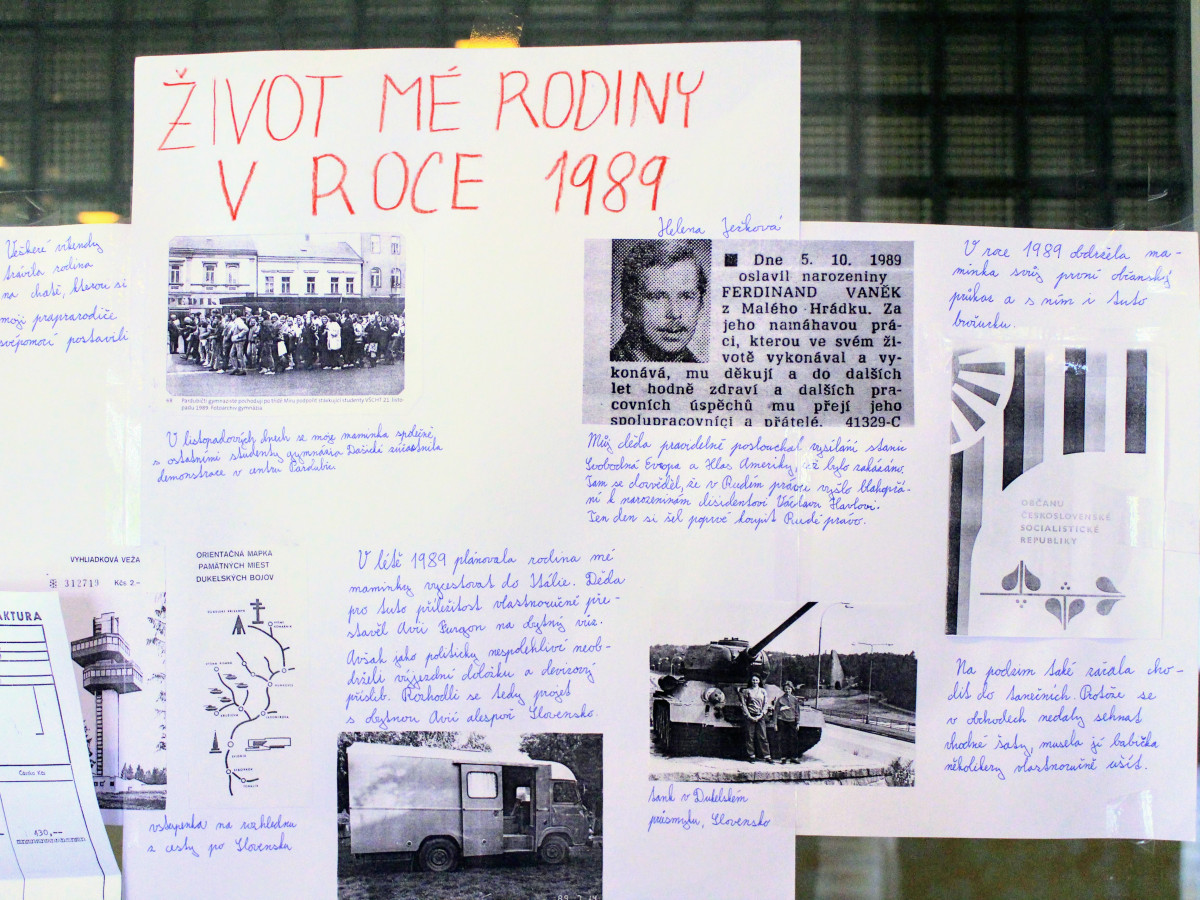 ŽIVOT MÉ RODINY
V ROCE 1989
Helena Ježková
Veškeré víkendy
trávila rodina
na chatě, kterou si
moji praprarodiče
svépomocí postavili
68 Pardubičtí gymnazisté pochodují po třídě Míru podpořit stávkující studenty VŠCHT 21. listo-
padu 1989. Fotoarchiv gymnázia.
V listopadových dnech se moje maminka společně
s ostatními studenty gymnázia Dašická zúčastnila
demonstrace v centru Pardubic.
Dne 5. 10. 1989
oslavil narozeniny
FERDINAND VANĚK
z Malého Hrádku. Za
jeho namáhavou prá-
ci, kterou ve svém ži-
votě vykonával a vy-
konává, mu děkují a do dalších
let hodně zdraví a dalších pra-
covních úspěchů mu přejí jeho
spolupracovníci a přátelé. 41329-C
Můj děda pravidelně poslouchal vysílání stanic
Svobodná Evropa a Hlas Ameriky, což bylo zakázáno.
Tam se dozvěděl, že v Rudém právu vyšlo blahopřá-
ní k narozeninám disidentovi Václavu Havlovi.
Ten den si šel poprvé koupit Rudé právo.
V roce 1989 obdržela ma-
minka svůj první občanský
průkaz a s ním i tuto
brožurku.
OBČANU
ČESKOSLOVENSKÉ
SOCIALISTICKÉ
REPUBLIKY
Na podzim také začala cho-
dit do tanečních. Protože se
v obchodech nedaly sehnat
vhodné šaty, musela jí babička
několikery vlastnoručně ušít.
VYHLIADKOVÁ VEŽA
312719 Kčs 2.-
ORIENTAČNÁ MAPKA
PAMÄTNÝCH MIEST
DUKELSKÝCH BOJOV
vstupenka na rozhlednu
z cesty po Slovensku
V létě 1989 plánovala rodina mé
maminky vycestovat do Itálie. Děda
pro tuto příležitost vlastnoručně pře-
stavěl Avii Furgon na obytný vůz.
Avšak jako politicky nespolehliví neob-
drželi výjezdní doložku a devizový
příslib. Rozhodli se tedy projet
s obytnou Avií alespoň Slovensko.
89 7 24
tank v Dukelském
průsmyku, Slovensko
AKTURA
130,--